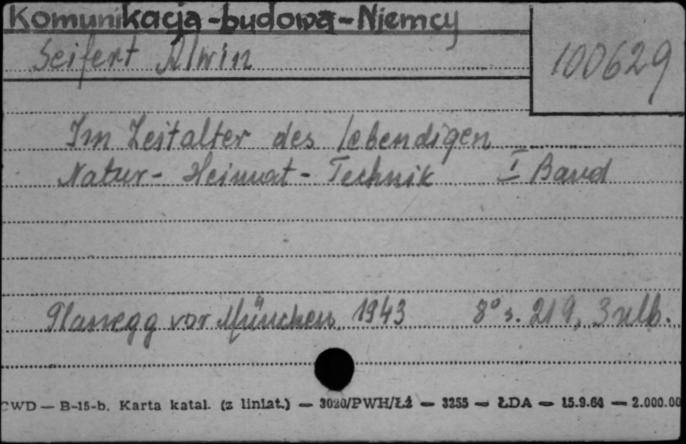 Komunikacja-budowa-Niemcy
Seifert Alwin
100629
Im Zeitalter des lebendigen
Natur - Heimat - Technik I Band
Planegg vor München 1943 8° s. 219, 3 nlb.
CWD — B-15-b. Karta katal. (z liniat.) — 3020/PWH/Łż — 3255 — ŁDA — 15.9.64 — 2.000.00